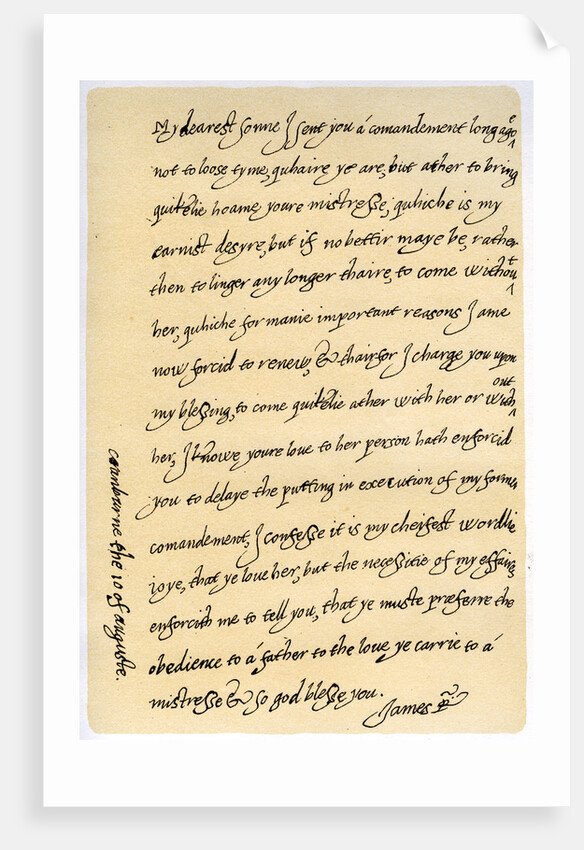 My dearest sonne I sent you á comandement long ago
not to loose tyme, quhaire ye are, but ather to bring
quikelie hoame youre mistresse, quhiche is my
earnist desyre, but if no bettir maye be, rather
then to linger any longer thaire, to come without
her, quhiche for manie important reasons I ame
now forcid to renew, & thairfor I charge you upon
my blessing, to come quikelie ather with her or without
her, I knowe youre love to her person hath enforcid
you to delaye the putting in execution of my former
comandement, I confesse it is my cheifest wordlie
ioye, that ye love her, but the necessitie of my effairs
enforcith me to tell you, that ye muste præferre the
obedience to á father to the love ye carrie to á
mistresse & so god blesse you.
James
cranburne the 10 of auguste.